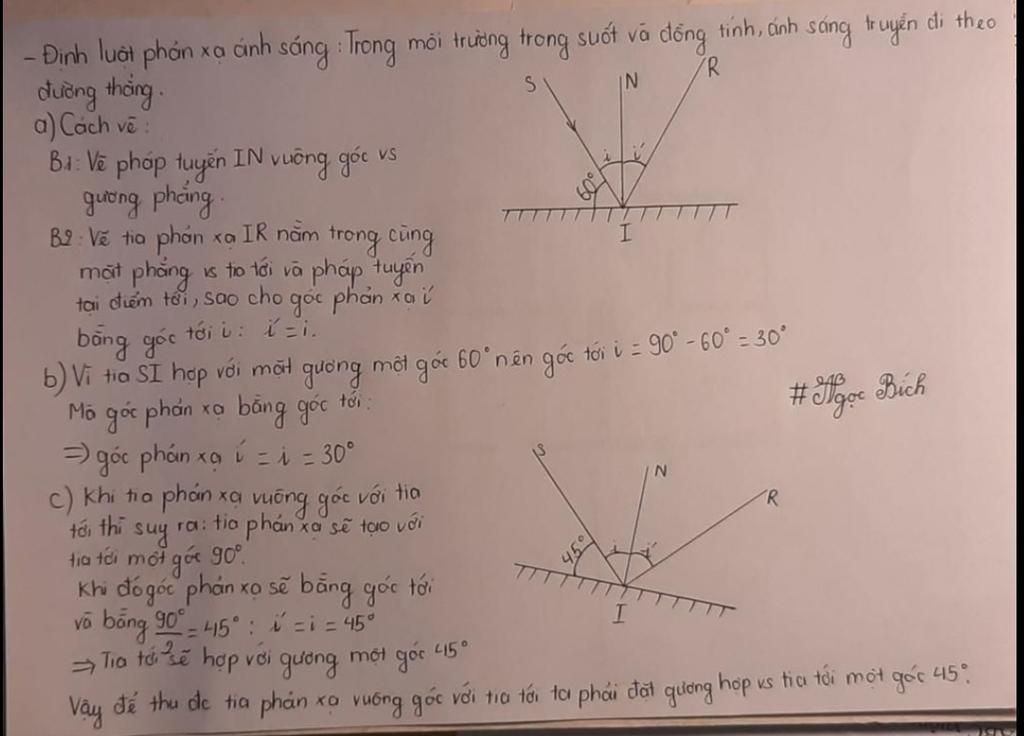 - Định luật phản xạ ánh sáng: Trong môi trường trong suốt và đồng tính, ánh sáng truyền đi theo
đường thẳng.
a) Cách vẽ:
B1: Vẽ pháp tuyến IN vuông góc vs
gương phẳng.
B2: Vẽ tia phản xạ IR nằm trong cùng
mặt phẳng vs tia tới và pháp tuyến
tại điểm tới, sao cho góc phản xạ i'
bằng góc tới i: i' = i.
S N R
i i'
60°
I
b) Vì tia SI hợp với mặt gương một góc 60° nên góc tới i = 90° - 60° = 30°
Mà góc phản xạ bằng góc tới:
⇒ góc phản xạ i' = i = 30°
# Ngọc Bích
c) Khi tia phản xạ vuông góc với tia
tới thì suy ra: tia phản xạ sẽ tạo với
tia tới một góc 90°.
Khi đó góc phản xạ sẽ bằng góc tới
và bằng 90°/2 = 45° : i' = i = 45°
⇒ Tia tới sẽ hợp với gương một góc 45°
S N R
45° i i'
I
Vậy để thu đc tia phản xạ vuông góc với tia tới ta phải đặt gương hợp vs tia tới một góc 45°.